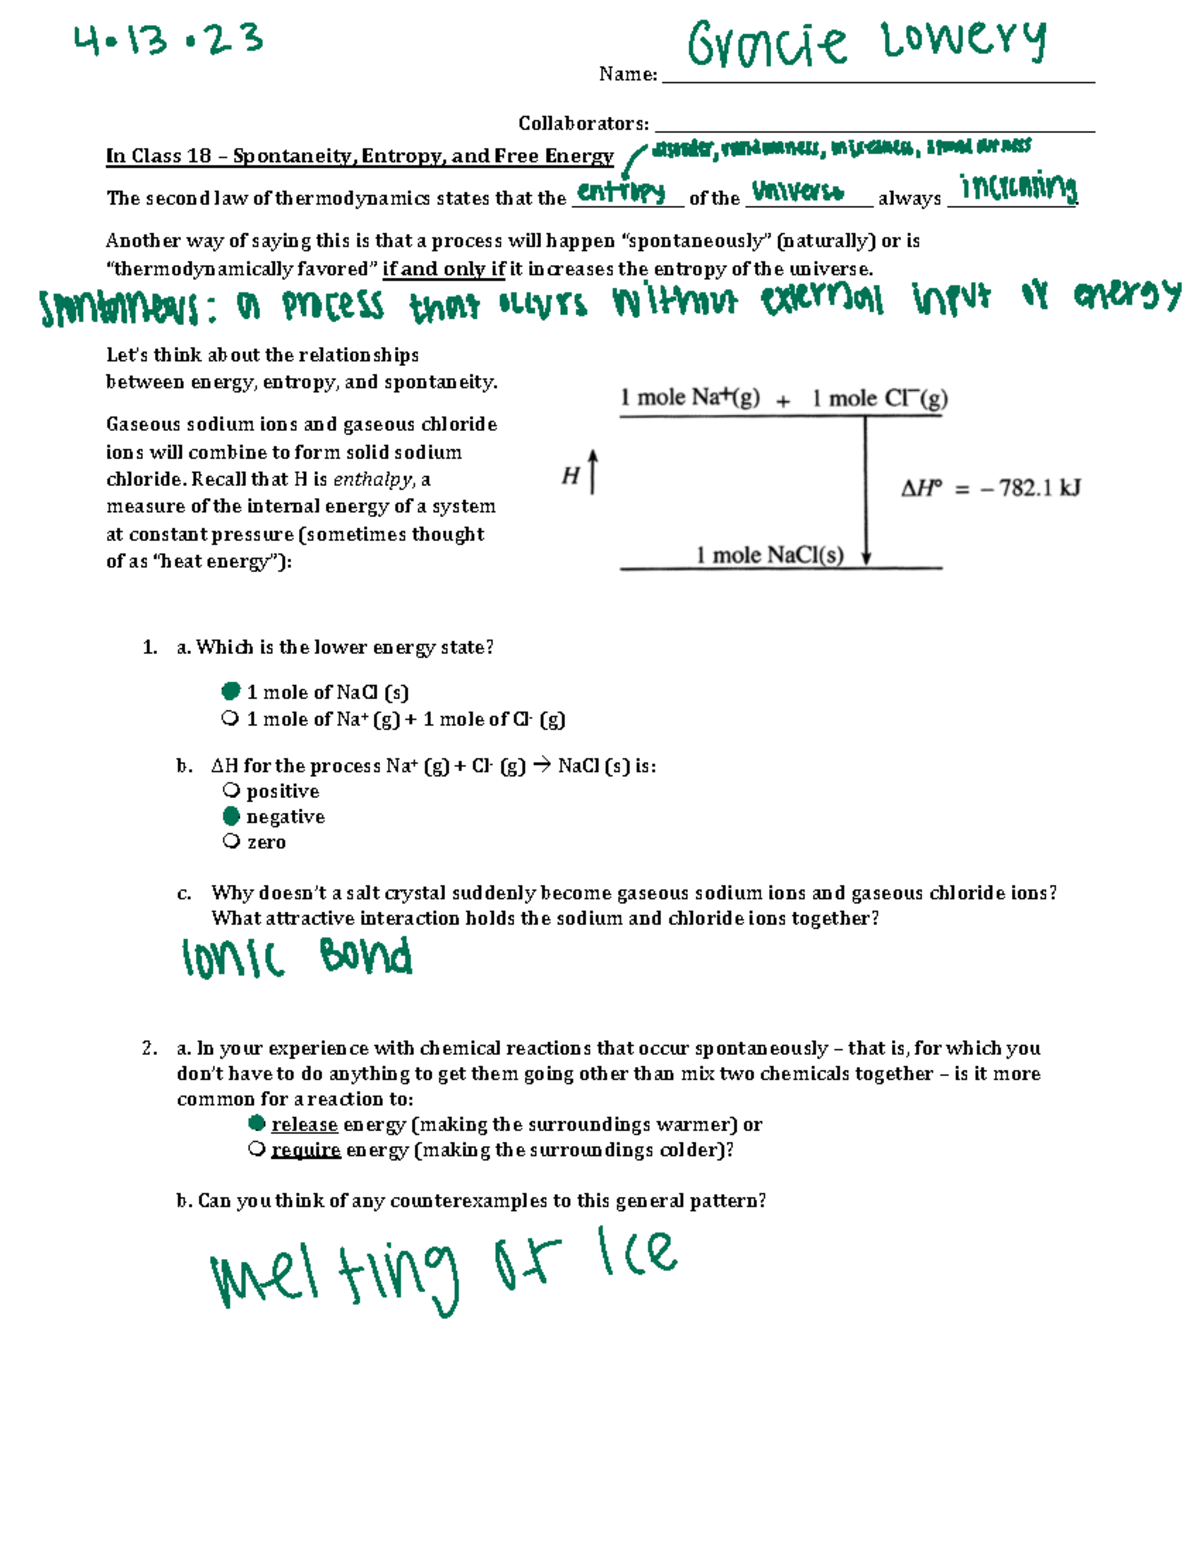 4.13.23
Gracie Lowery
Name:
Collaborators:
disorder, randomness, mixedness, spread outness
In Class 18 – Spontaneity, Entropy, and Free Energy
The second law of thermodynamics states that the entropy of the universe always increasing.
Another way of saying this is that a process will happen “spontaneously” (naturally) or is
“thermodynamically favored” if and only if it increases the entropy of the universe.
Spontaneous: a process that occurs without external input of energy
Let’s think about the relationships
between energy, entropy, and spontaneity.
Gaseous sodium ions and gaseous chloride
ions will combine to form solid sodium
chloride. Recall that H is enthalpy, a
measure of the internal energy of a system
at constant pressure (sometimes thought
of as “heat energy”):
1 mole Na⁺(g) + 1 mole Cl⁻(g)
H
ΔH° = – 782.1 kJ
1 mole NaCl(s)
1. a. Which is the lower energy state?
1 mole of NaCl (s)
1 mole of Na⁺ (g) + 1 mole of Cl⁻ (g)
b. ΔH for the process Na⁺ (g) + Cl⁻ (g) → NaCl (s) is:
positive
negative
zero
c. Why doesn’t a salt crystal suddenly become gaseous sodium ions and gaseous chloride ions?
What attractive interaction holds the sodium and chloride ions together?
Ionic Bond
2. a. In your experience with chemical reactions that occur spontaneously – that is, for which you
don’t have to do anything to get them going other than mix two chemicals together – is it more
common for a reaction to:
release energy (making the surroundings warmer) or
require energy (making the surroundings colder)?
b. Can you think of any counterexamples to this general pattern?
melting of Ice